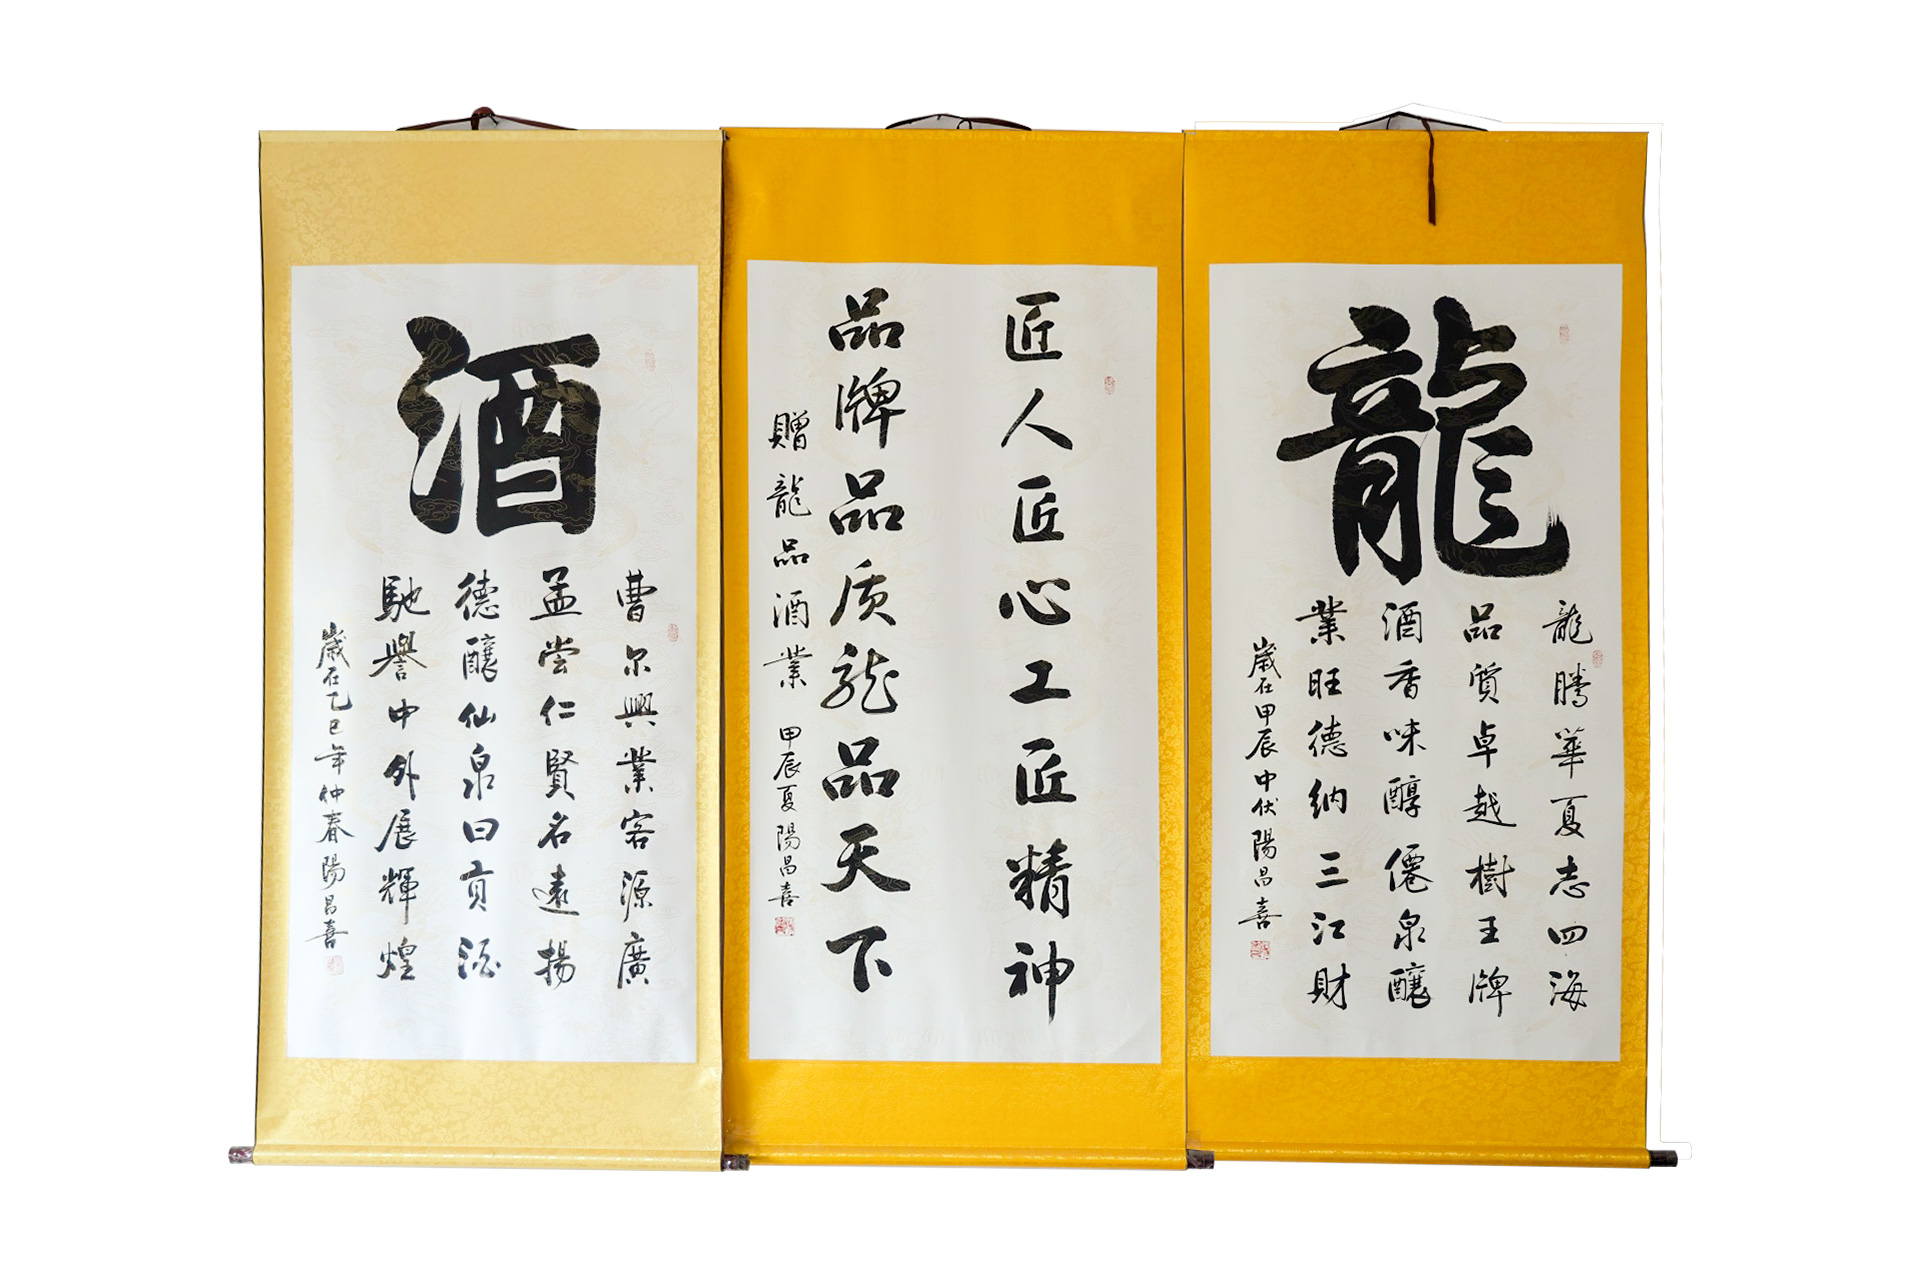 龍
龍騰華夏志四海
品質卓越樹王牌
酒香味醇僊泉釀
業旺德纳三江財
歲在甲辰中伏陽昌喜
匠人匠心工匠精神
品牌品质龍品天下
贈龍品酒業 甲辰夏陽昌喜
酒
曹尔興業客源廣
孟尝仁賢名遠揚
德釀仙泉曰貢酒
馳譽中外展輝煌
歲在乙巳年仲春陽昌喜